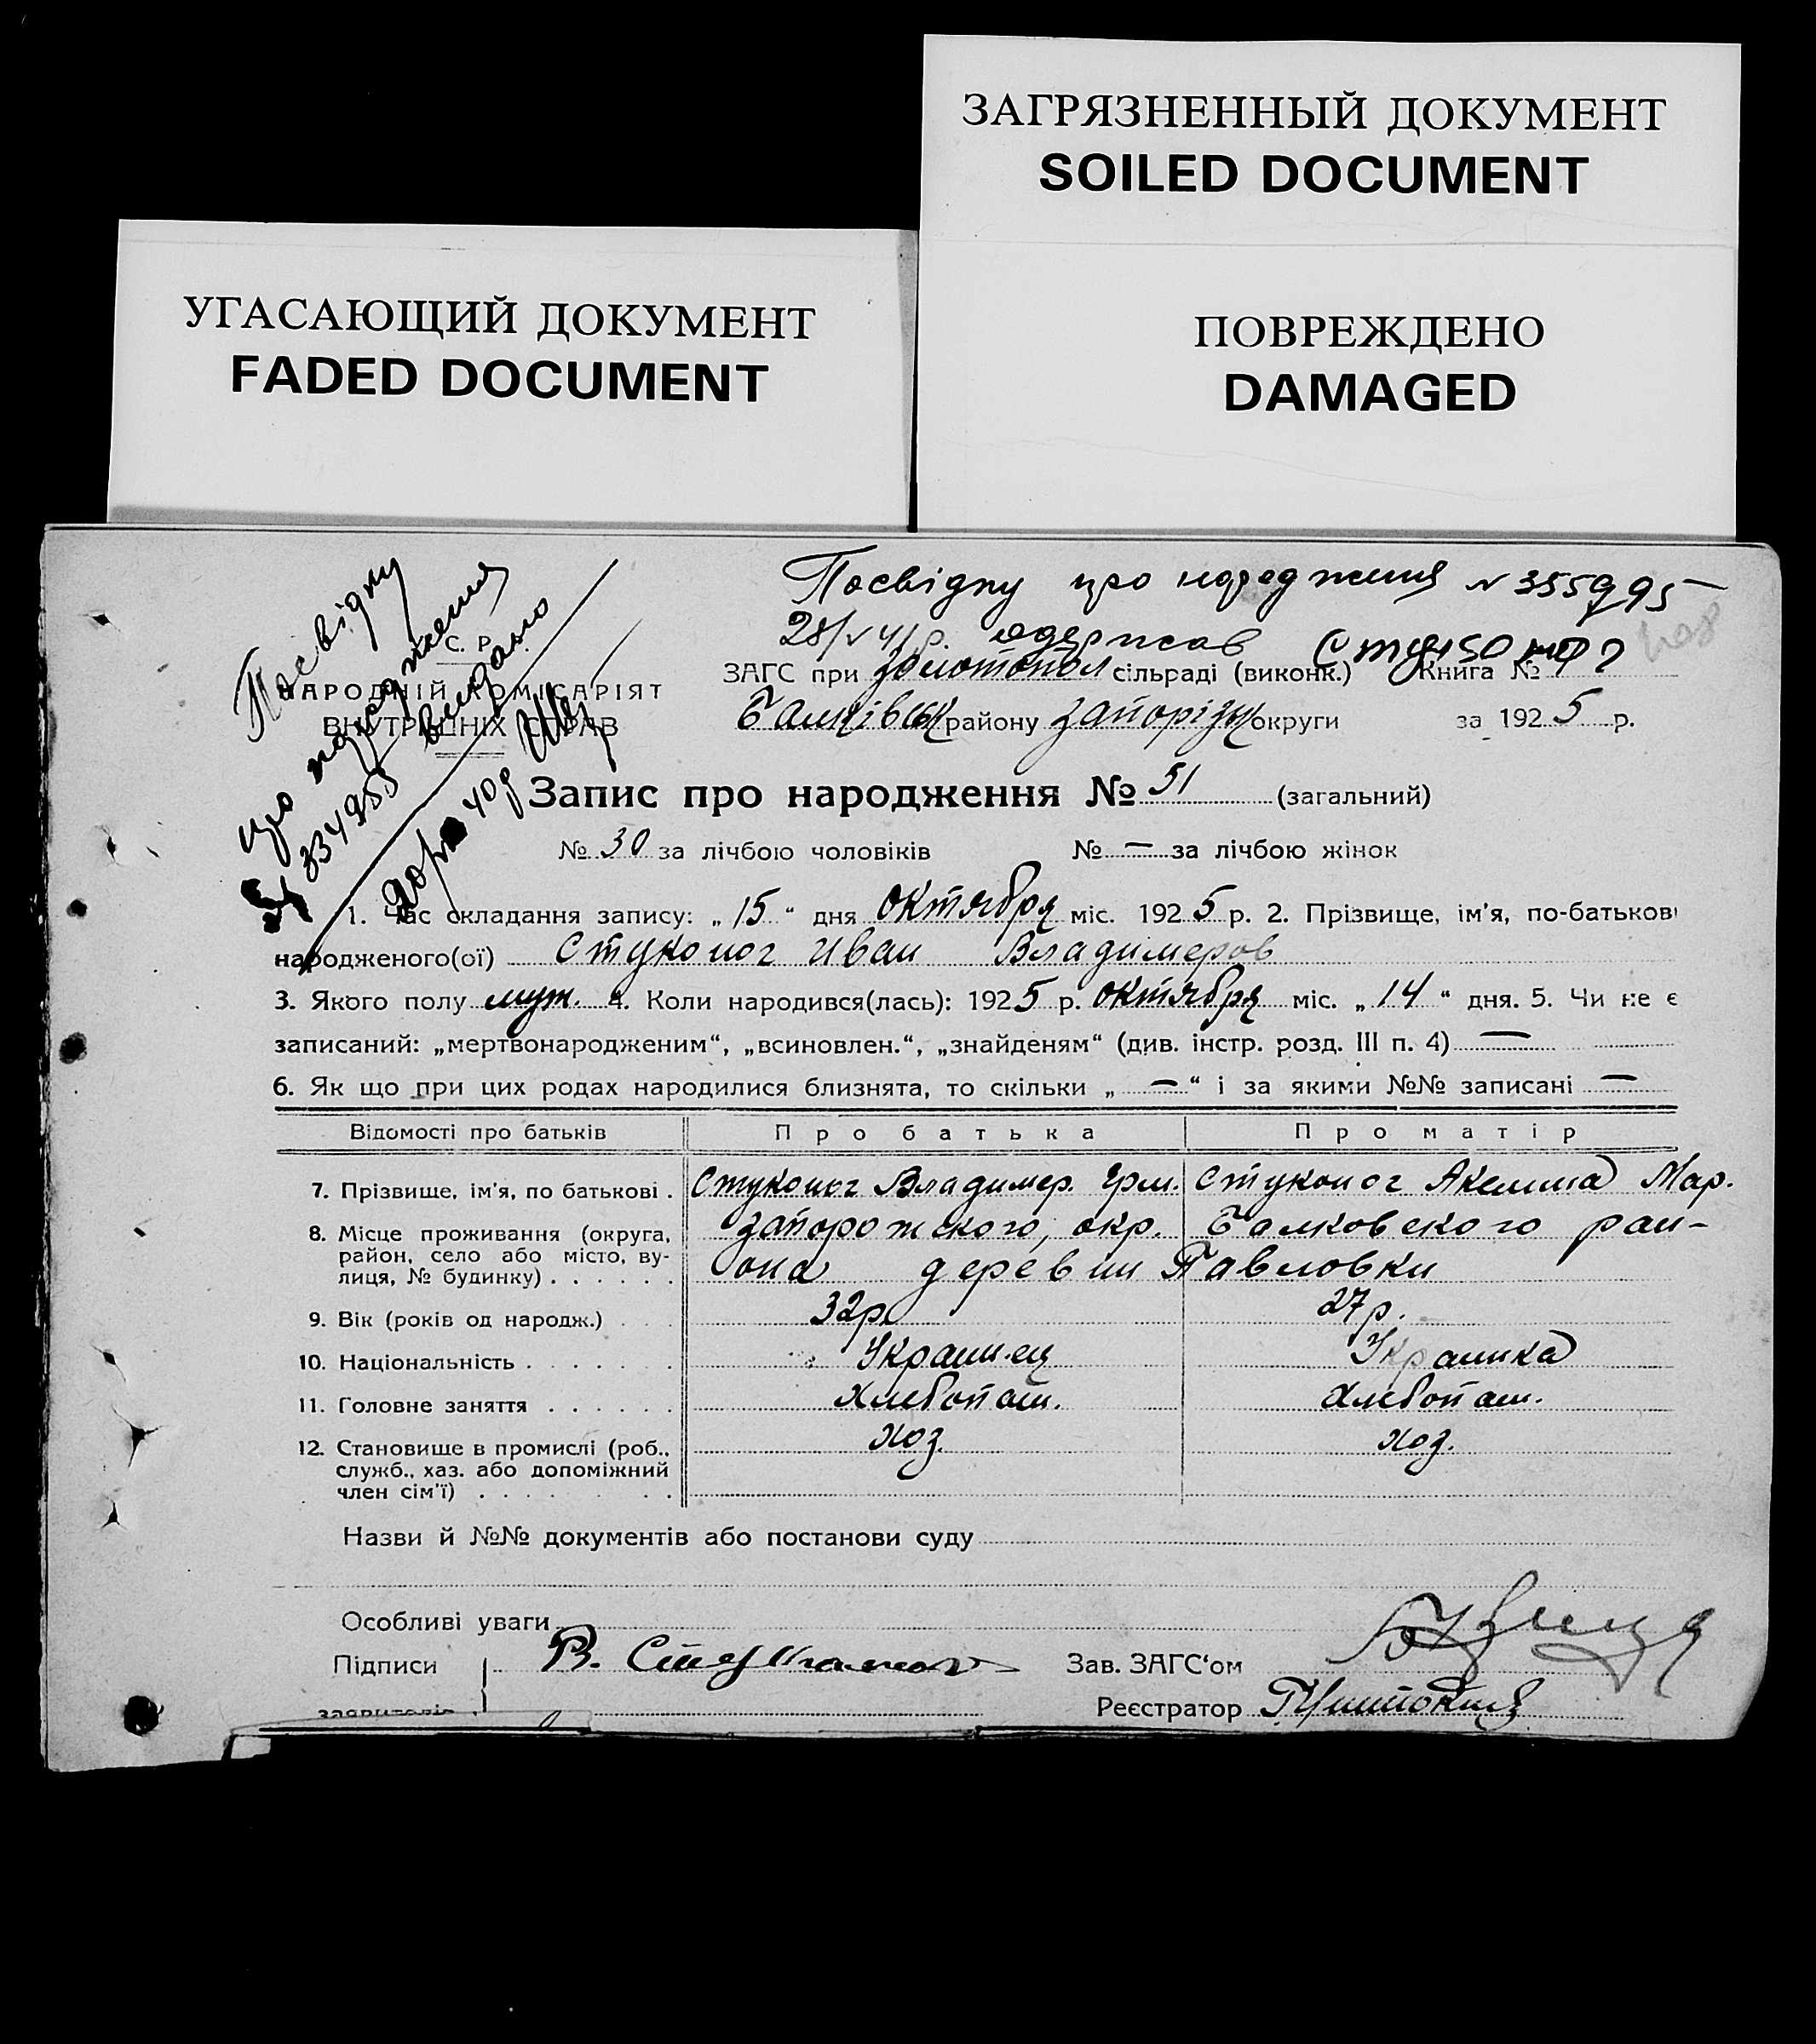 ЗАГРЯЗНЕННЫЙ ДОКУМЕНТ
SOILED DOCUMENT
УГАСАЮЩИЙ ДОКУМЕНТ
FADED DOCUMENT
ПОВРЕЖДЕНО
DAMAGED
Посвідку про народження N 355995
28/V 41 р. одержав
Посвідку
про народження
видано
334955
С. Р. Р.
НАРОДНІЙ КОМІСАРІЯТ
ВНУТРІШНІХ СПРАВ
ЗАГС при Золотопол сільраді (виконк.) Книга №
Балківськ району Запорізьк округи за 1925 р.
Запис про народження № 51 (загальний)
№ 30 за лічбою чоловіків № — за лічбою жінок
1. Час складання запису: „15“ дня октября міс. 1925 р. 2. Прізвище, ім'я, по-батькові
народженого(ої) Стуконог Иван Владимеров
3. Якого полу муж. 4. Коли народився(лась): 1925 р. октября міс. „14“ дня. 5. Чи не є
записаний: „мертвонародженим“, „всиновлен.“, „знайденям“ (див. інстр. розд. III п. 4) —
6. Як що при цих родах народилися близнята, то скільки „—“ і за якими №№ записані —
Відомості про батьків Про батька Про матір
7. Прізвище, ім'я, по батькові . Стуконог Владимер. Ерм. Стуконог Акелина Мар.
8. Місце проживання (округа, район, село або місто, вулиця, № будинку) . . . . . . Запорожского, окр. Балковского раи-
она деревни Павловки
9. Вік (років од народж.) . . . 32р. 27р.
10. Національність . . . . . . . Украинец Украинка
11. Головне заняття . . . . . . Хлебопаш. Хлебопаш.
12. Становище в промислі (роб., служб., хаз. або допоміжний член сім'ї) . . . . . . . . Хоз. Хоз.
Назви й №№ документів або постанови суду
Особливі уваги
Підписи В. Стуконог Зав. ЗАГС‘ом
заявителів Реєстратор